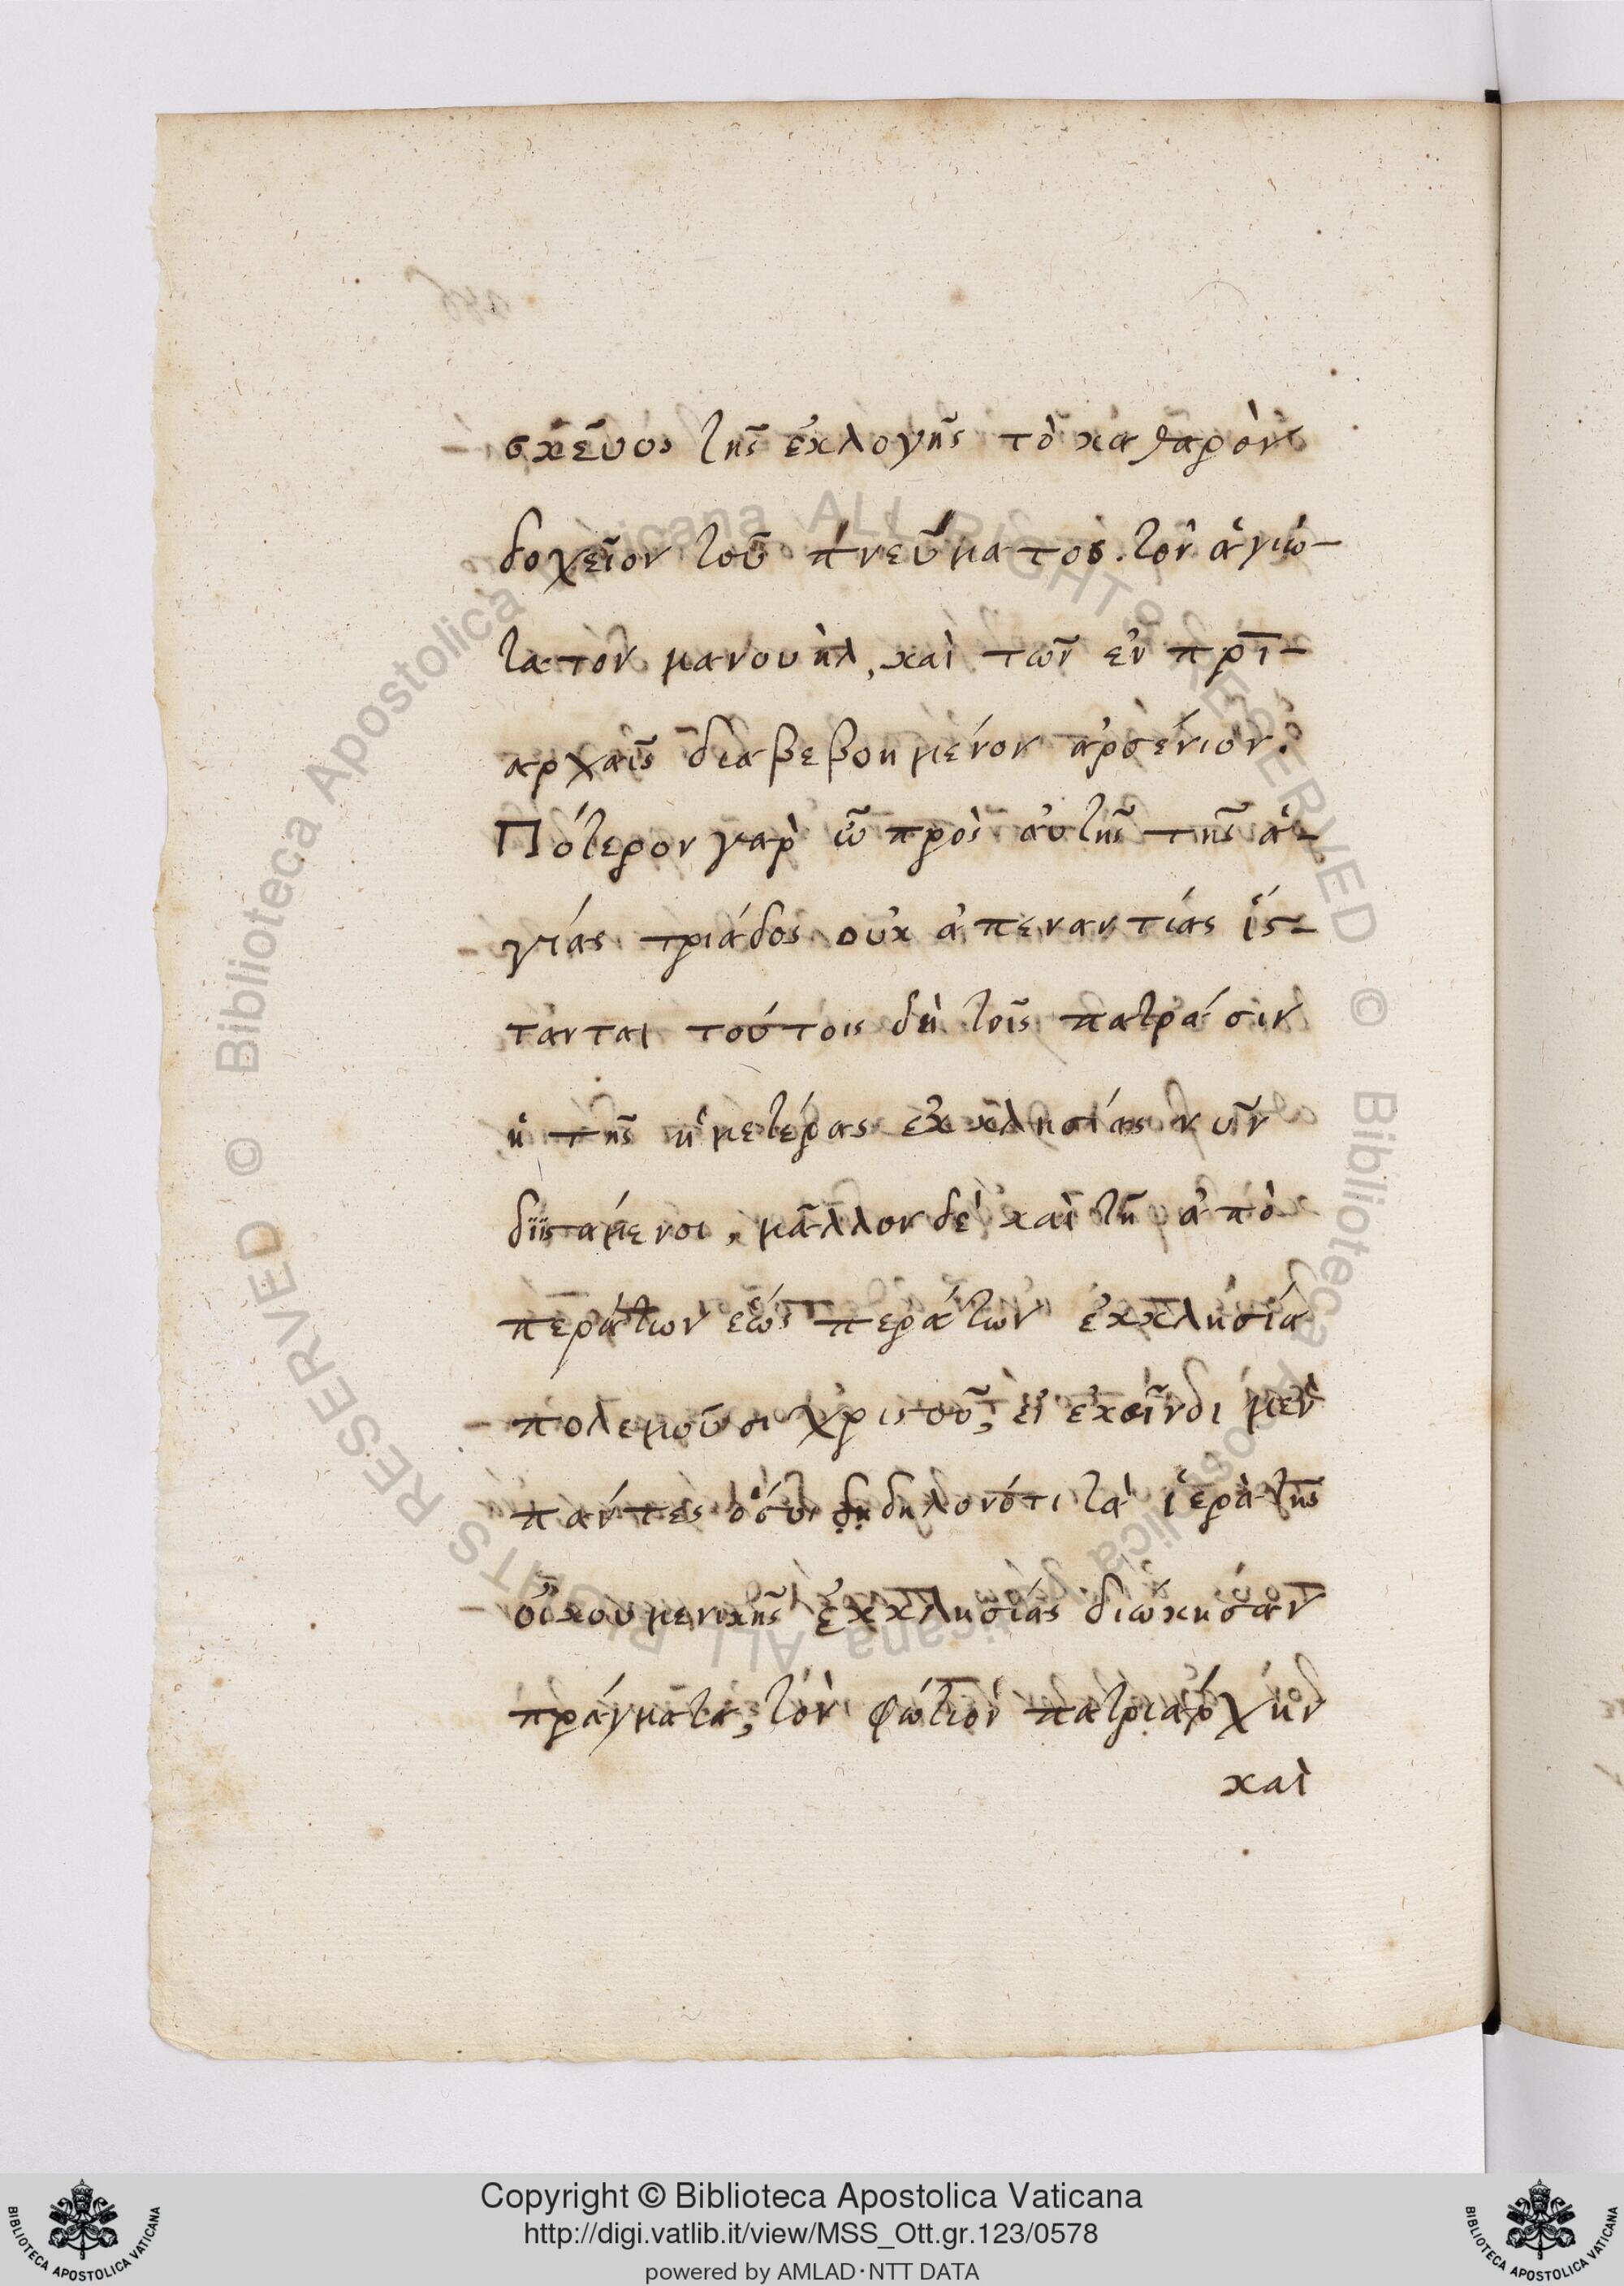 σκεῦος τῆς ἐκλογῆς τὸ καθαρὸν
δοχεῖον τοῦ πνεύματος. τὸν ἁγιώ-
τατον μανουὴλ, καὶ τῶν ἐν πρι-
αρχαῖς διαβεβοημένον ἀρσένιον.
Πότερον γαρ ὦ πρὸς αὐτῆς τῆς ἁ-
γίας τριάδος οὐκ ἀπεναντίας ἵσ-
τανται τούτοις δὴ τοῖς πατράσιν
ἡ τῆς ἡμετέρας ἐκκλησίας νῦν
διϊστάμενοι, μᾶλλον δὲ καὶ τῆ ἀπὸ
περάτων ἑὼς περάτων ἐκκλησία
πολεμοῦσι χριστοῦ, εἰ ἐκεῖνδι μεν
πάντες ὅσοι δηλονότι τὰ ἱερὰ τῆς
οἰκουμενικῆς ἐκκλησίας διώκησαν
πράγματα, τὸν φώτιον πατριάρχην
καὶ
Copyright © Biblioteca Apostolica Vaticana
http://digi.vatlib.it/view/MSS_Ott.gr.123/0578
powered by AMLAD·NTT DATA